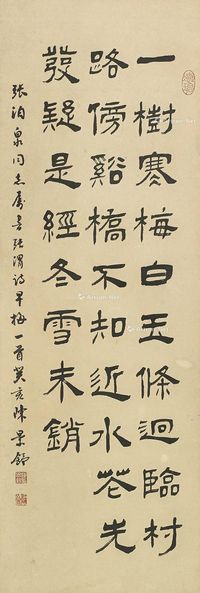 一樹寒梅白玉條迥臨村
路傍谿橋不知近水花先
發疑是經冬雪未銷
張泊泉同志屬書張渭詩早梅一首癸亥陳景舒